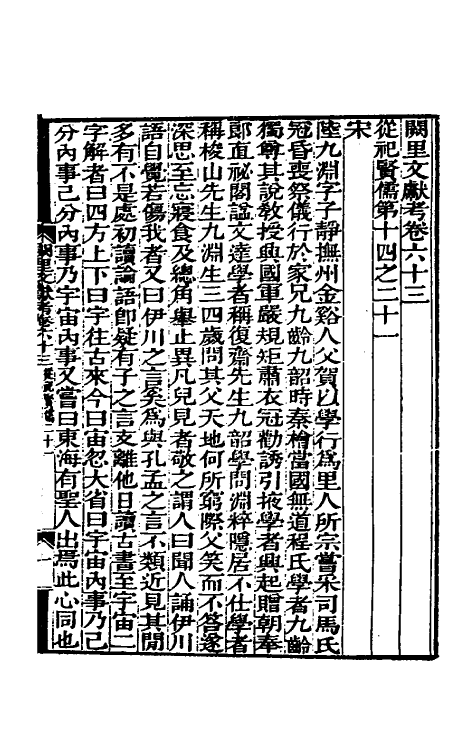 闕里文獻考卷六十三
從祀賢儒第十四之二十一
宋
陸九淵字子靜撫州金谿人父賀以學行爲里人所宗嘗采司馬氏
冠昏喪祭儀行於家兄九齡九韶時秦檜當國無道程氏學者九齡
獨尊其說敎授興國軍嚴規矩肅衣冠勸誘引掖學者興起贈朝奉
郎直祕閣諡文達學者稱復齋先生九韶學問淵粹隱居不仕學者
稱梭山先生九淵生三四歲問其父天地何所窮際父笑而不答遂
深思至忘寢食及總角舉止異凡兒見者敬之謂人曰聞人誦伊川
語自覺若傷我者又曰伊川之言奚爲與孔孟之言不類近見其閒
多有不是處初讀論語卽疑有子之言支離他日讀古書至宇宙二
字解者曰四方上下曰宇往古來今曰宙忽大省曰宇宙內事乃己
分內事己分內事乃宇宙內事又嘗曰東海有聖人出焉此心同也
闕里文獻考卷六十三 從祀賢儒二十一 一